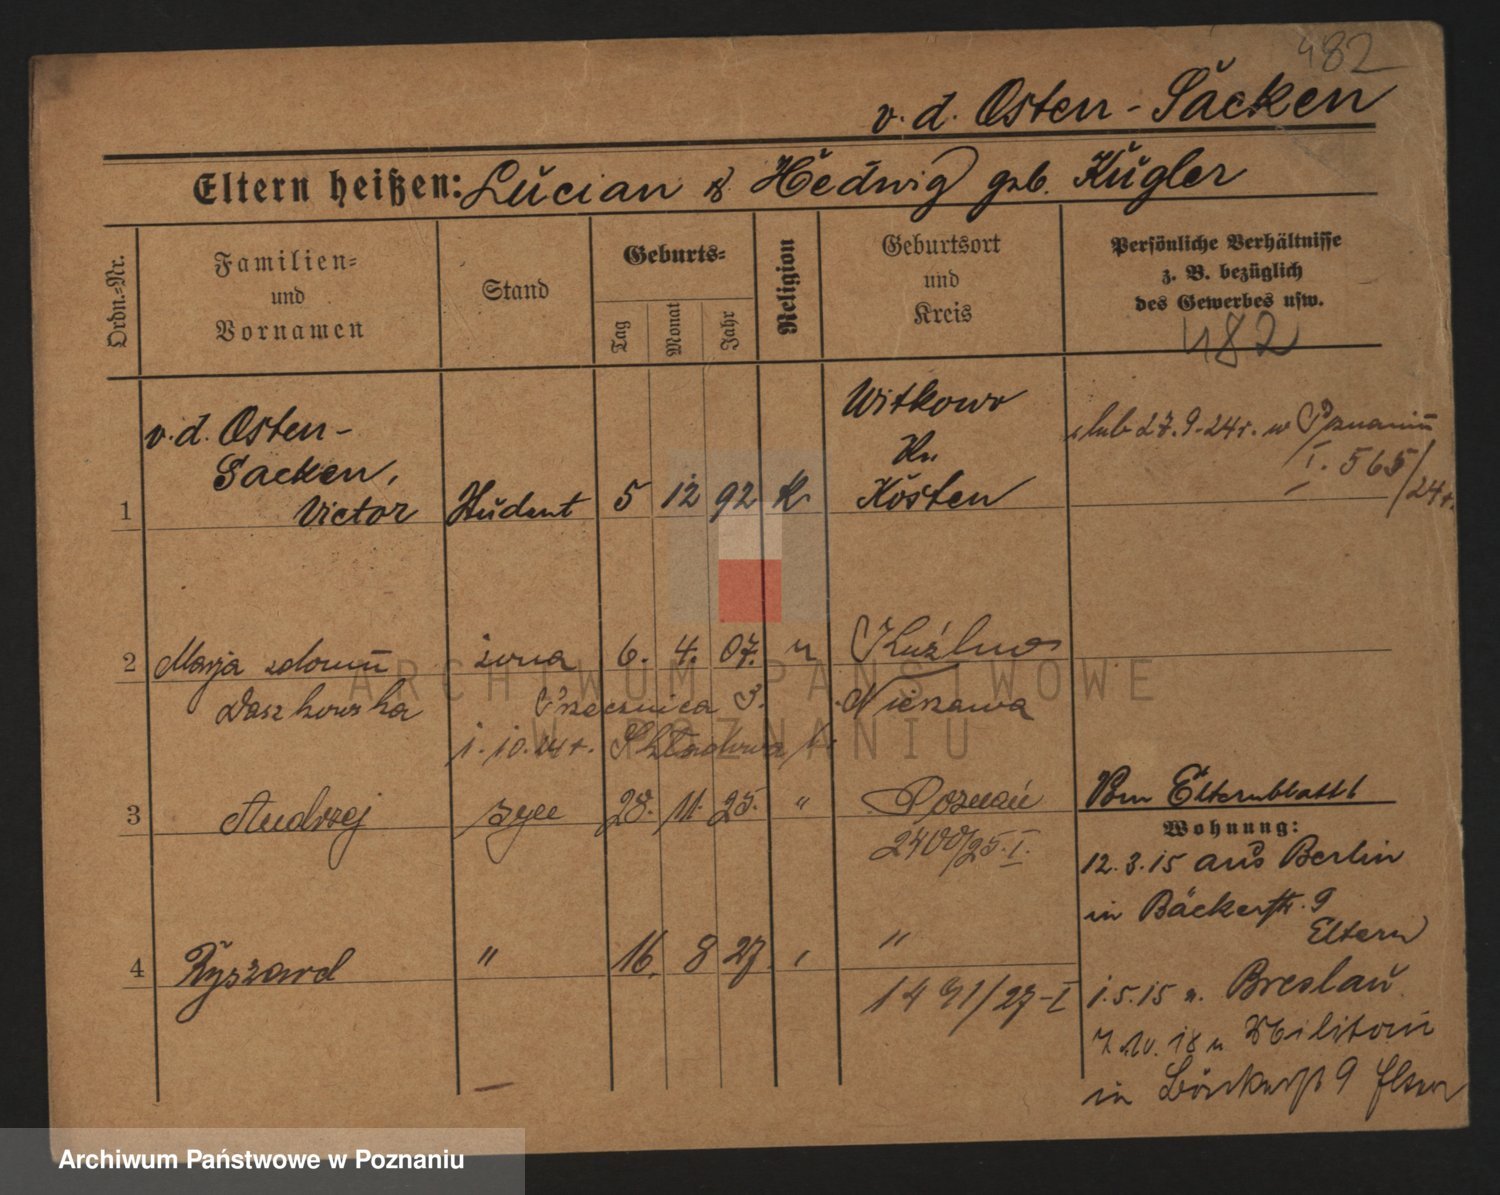 482
v. d. Osten-Sacken
Eltern heißen: Lucian & Hedwig geb. Kugler
Ordn.-Nr.
Familien-
und
Vornamen
Stand
Geburts-
Tag
Monat
Jahr
Religion
Geburtsort
und
Kreis
Persönliche Verhältnisse
z. B. bezüglich
des Gewerbes usw.
482
1
v. d. Osten-
Sacken,
Victor
Student
5
12
92
K.
Witkowo
Kr.
Kosten
ślub 27.9.24r. w Poznaniu
I. 565/24r.
2
Marja
Daszkowska
żona
6.
4.
07.
"
Nieszawa
3
Andrzej
syn
28.
11.
25.
"
Poznań
2400/25. I.
4
Ryszard
"
16.
8
27.
"
"
1491/27-I
Vom Elternblatt
Wohnung:
12.3.15 aus Berlin
in Bäckerstr. 9
Eltern
1.5.15 n. Breslau
in Bäckerstr 9
ARCHIWUM PAŃSTWOWE
W POZNANIU
Archiwum Państwowe w Poznaniu